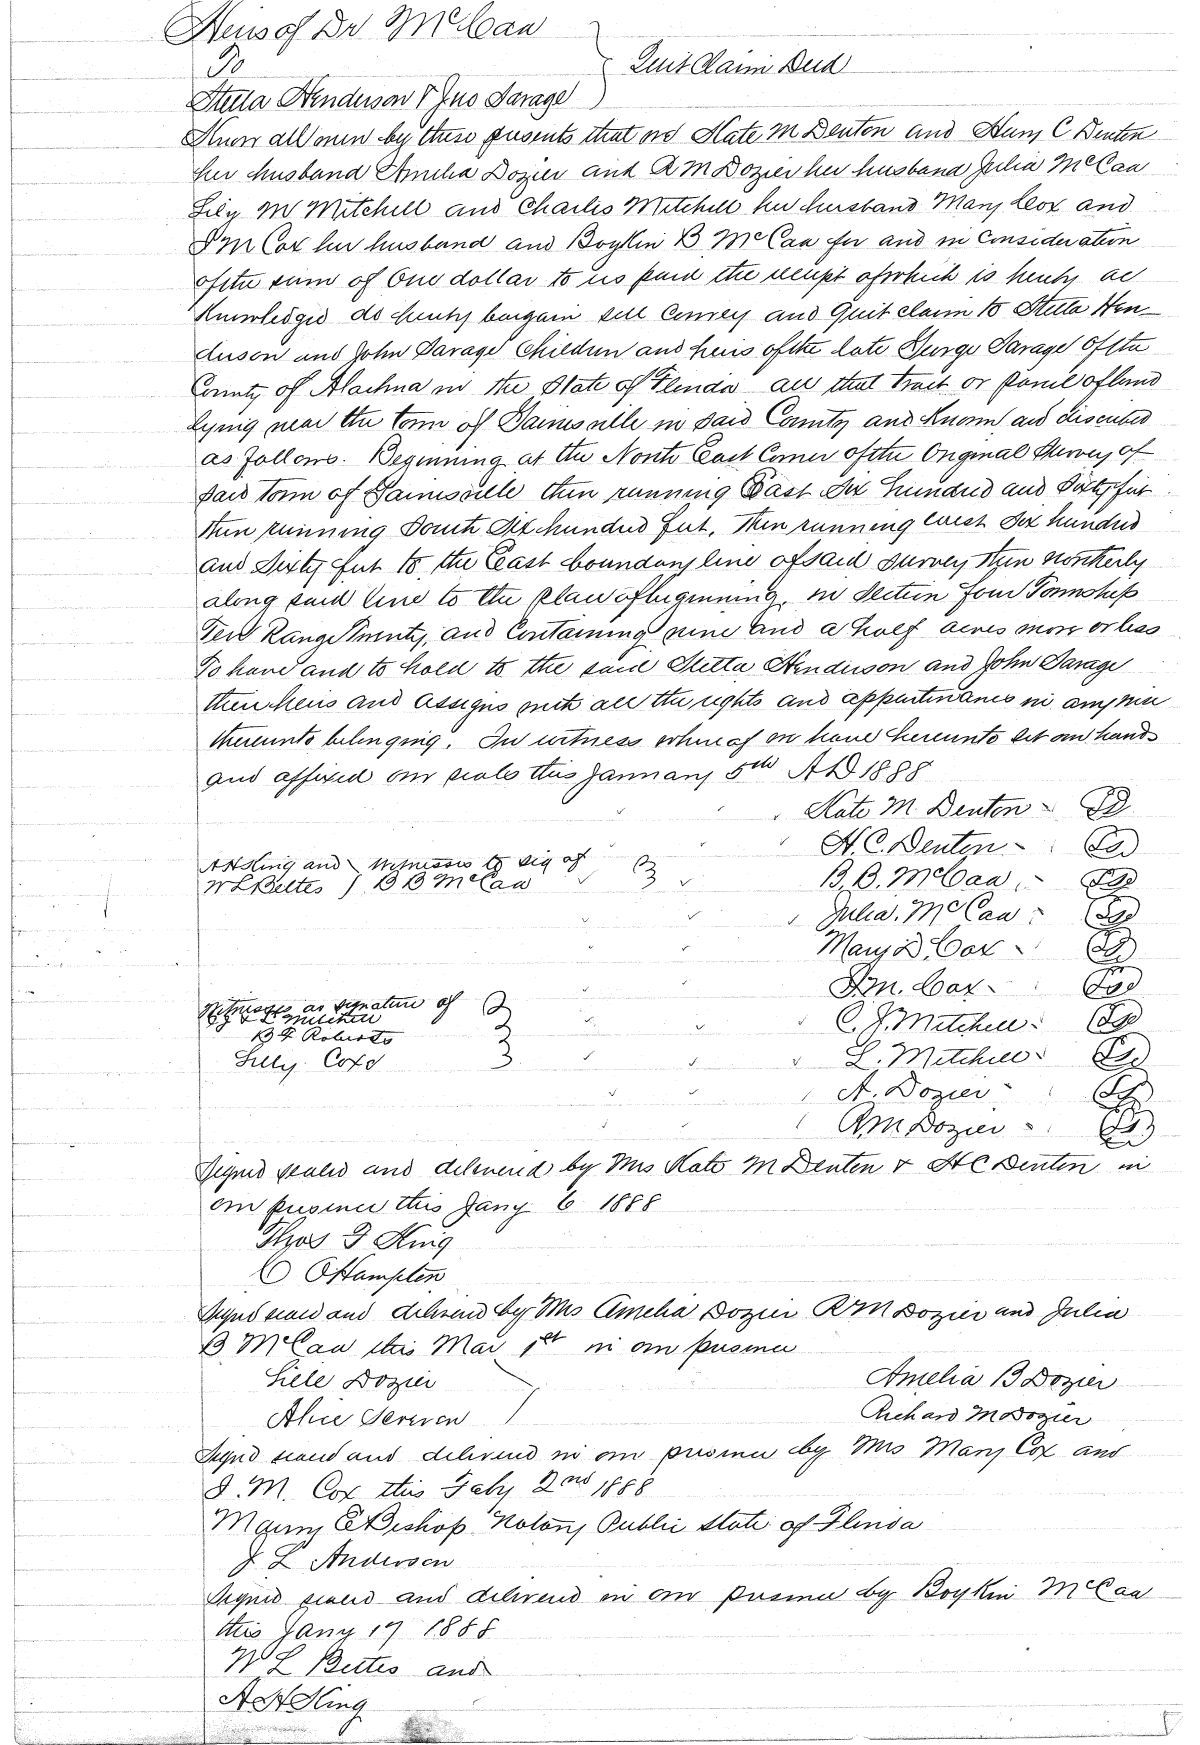 Heirs of Dr McCaa
To
Quit Claim Deed
Stella Henderson & Jno Savage
Know all men by these presents that we Kate M Denton and Henry C Denton
her husband Amelia Dozier and R M Dozier her husband Julia McCaa
Lily M Mitchell and Charles Mitchell her husband Mary Cox and
I M Cox her husband and Boykin B McCaa for and in consideration
of the sum of One dollar to us paid the receipt of which is hereby ac
knowledged do hereby bargain sell Convey and Quit claim to Stella Hen
derson and John Savage Children and heirs of the late George Savage of the
County of Alachua in the State of Florida all that tract or parcel of land
lying near the town of Gainesville in said County and Known and discribed
as follows. Beginning at the North East Corner of the Original Survey of
said town of Gainesville then running East Six hundred and Sixty feet
then running South Six hundred feet, then running West Six hundred
and Sixty feet to the East boundary line of said survey then northerly
along said line to the place of beginning, in Section four Township
Ten Range Twenty, and Containing nine and a half acres more or less
To have and to hold to the said Stella Henderson and John Savage
their heirs and assigns with all the rights and appurtinances in any wise
thereunto belonging. In witness whereof we have hereunto set our hands
and affixed our seals this January 5th AD 1888
Kate M. Denton
H. C. Denton
A H King and Witnesses to sig of
W L Bettes B B McCaa
B. B. McCaa
Julia. McCaa
Mary D. Cox
I. M. Cox
Witnesses as signature of
C J & L Mitchell
B F Roberts
C. J. Mitchell
Lilly Cox
L. Mitchell
A. Dozier
R M Dozier
Signed sealed and delivered by Mrs Kate M Denton & H C Denton in
our presence this Jany 6 1888
Thos F King
C O Hampton
Signed sealed and delivered by Mrs Amelia Dozier R M Dozier and Julia
B McCaa this Mar 1st in our presence
Lille Dozier
Amelia B Dozier
Alice Screven
Richard M Dozier
Signed sealed and delivered in our presence by Mrs Mary Cox and
I. M. Cox this Feby 2nd 1888
E Bishop Notary Public State of Florida
J L Anderson
Signed sealed and delivered in our presence by Boykin McCaa
this Jany 17 1888
W L Bettes and
A H King